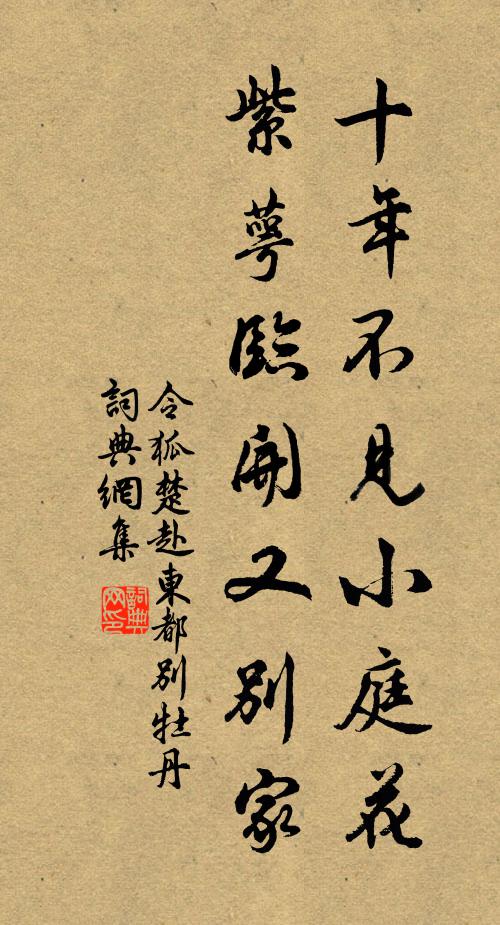 十年不見小庭花
紫萼臨開又別家
令狐楚赴東都別牡丹
詞典網集
詞典
网印